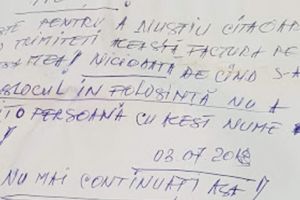 PENTRU A NUSTIU CITAOAR
TRIMITETI ACEASTA FACTURA PE
MEA! NICIODATA DE CIND S-A
BLOCUL IN FOLOSINTĂ NU A
PERSOANĂ CU ACEST NUME
03.07 2018
NU MAI CONTINUATI AȘA!